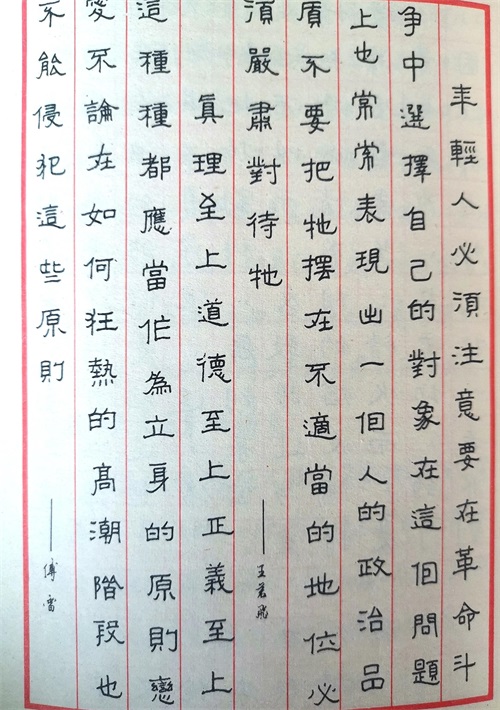 年輕人必須注意要在革命斗
争中選擇自己的對象在這個問題
上也常常表現出一個人的政治品
質不要把牠擺在不適當的地位必
須嚴肅對待牠——王若飛
真理至上道德至上正義至上
這種種都應當作為立身的原則戀
愛不論在如何狂熱的高潮階段也
不能侵犯這些原則——傅雷